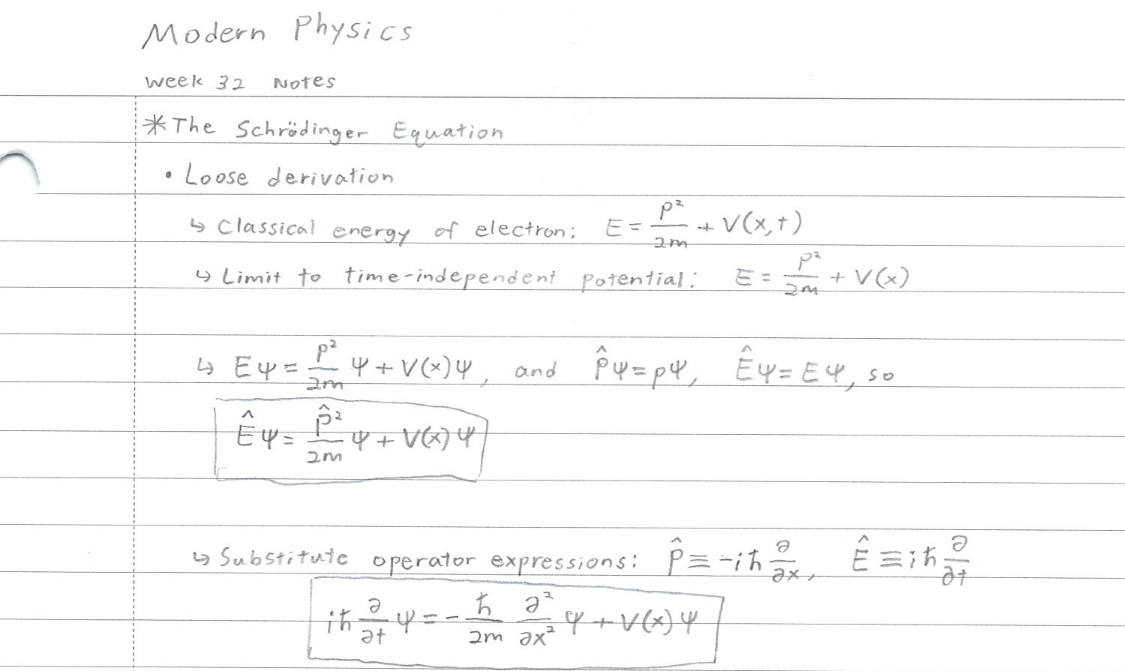 Modern Physics
Week 32 Notes
* The Schrödinger Equation
• Loose derivation
↳ Classical energy of electron: E = p²/2m + V(x,t)
↳ Limit to time-independent potential: E = p²/2m + V(x)
↳ Eψ = p²/2m ψ + V(x)ψ, and p̂ψ = pψ, Êψ = Eψ, so
Êψ = p̂²/2m ψ + V(x)ψ
↳ Substitute operator expressions: p̂ ≡ -iħ ∂/∂x, Ê ≡ iħ ∂/∂t
iħ ∂/∂t ψ = -ħ/2m ∂²/∂x² ψ + V(x)ψ